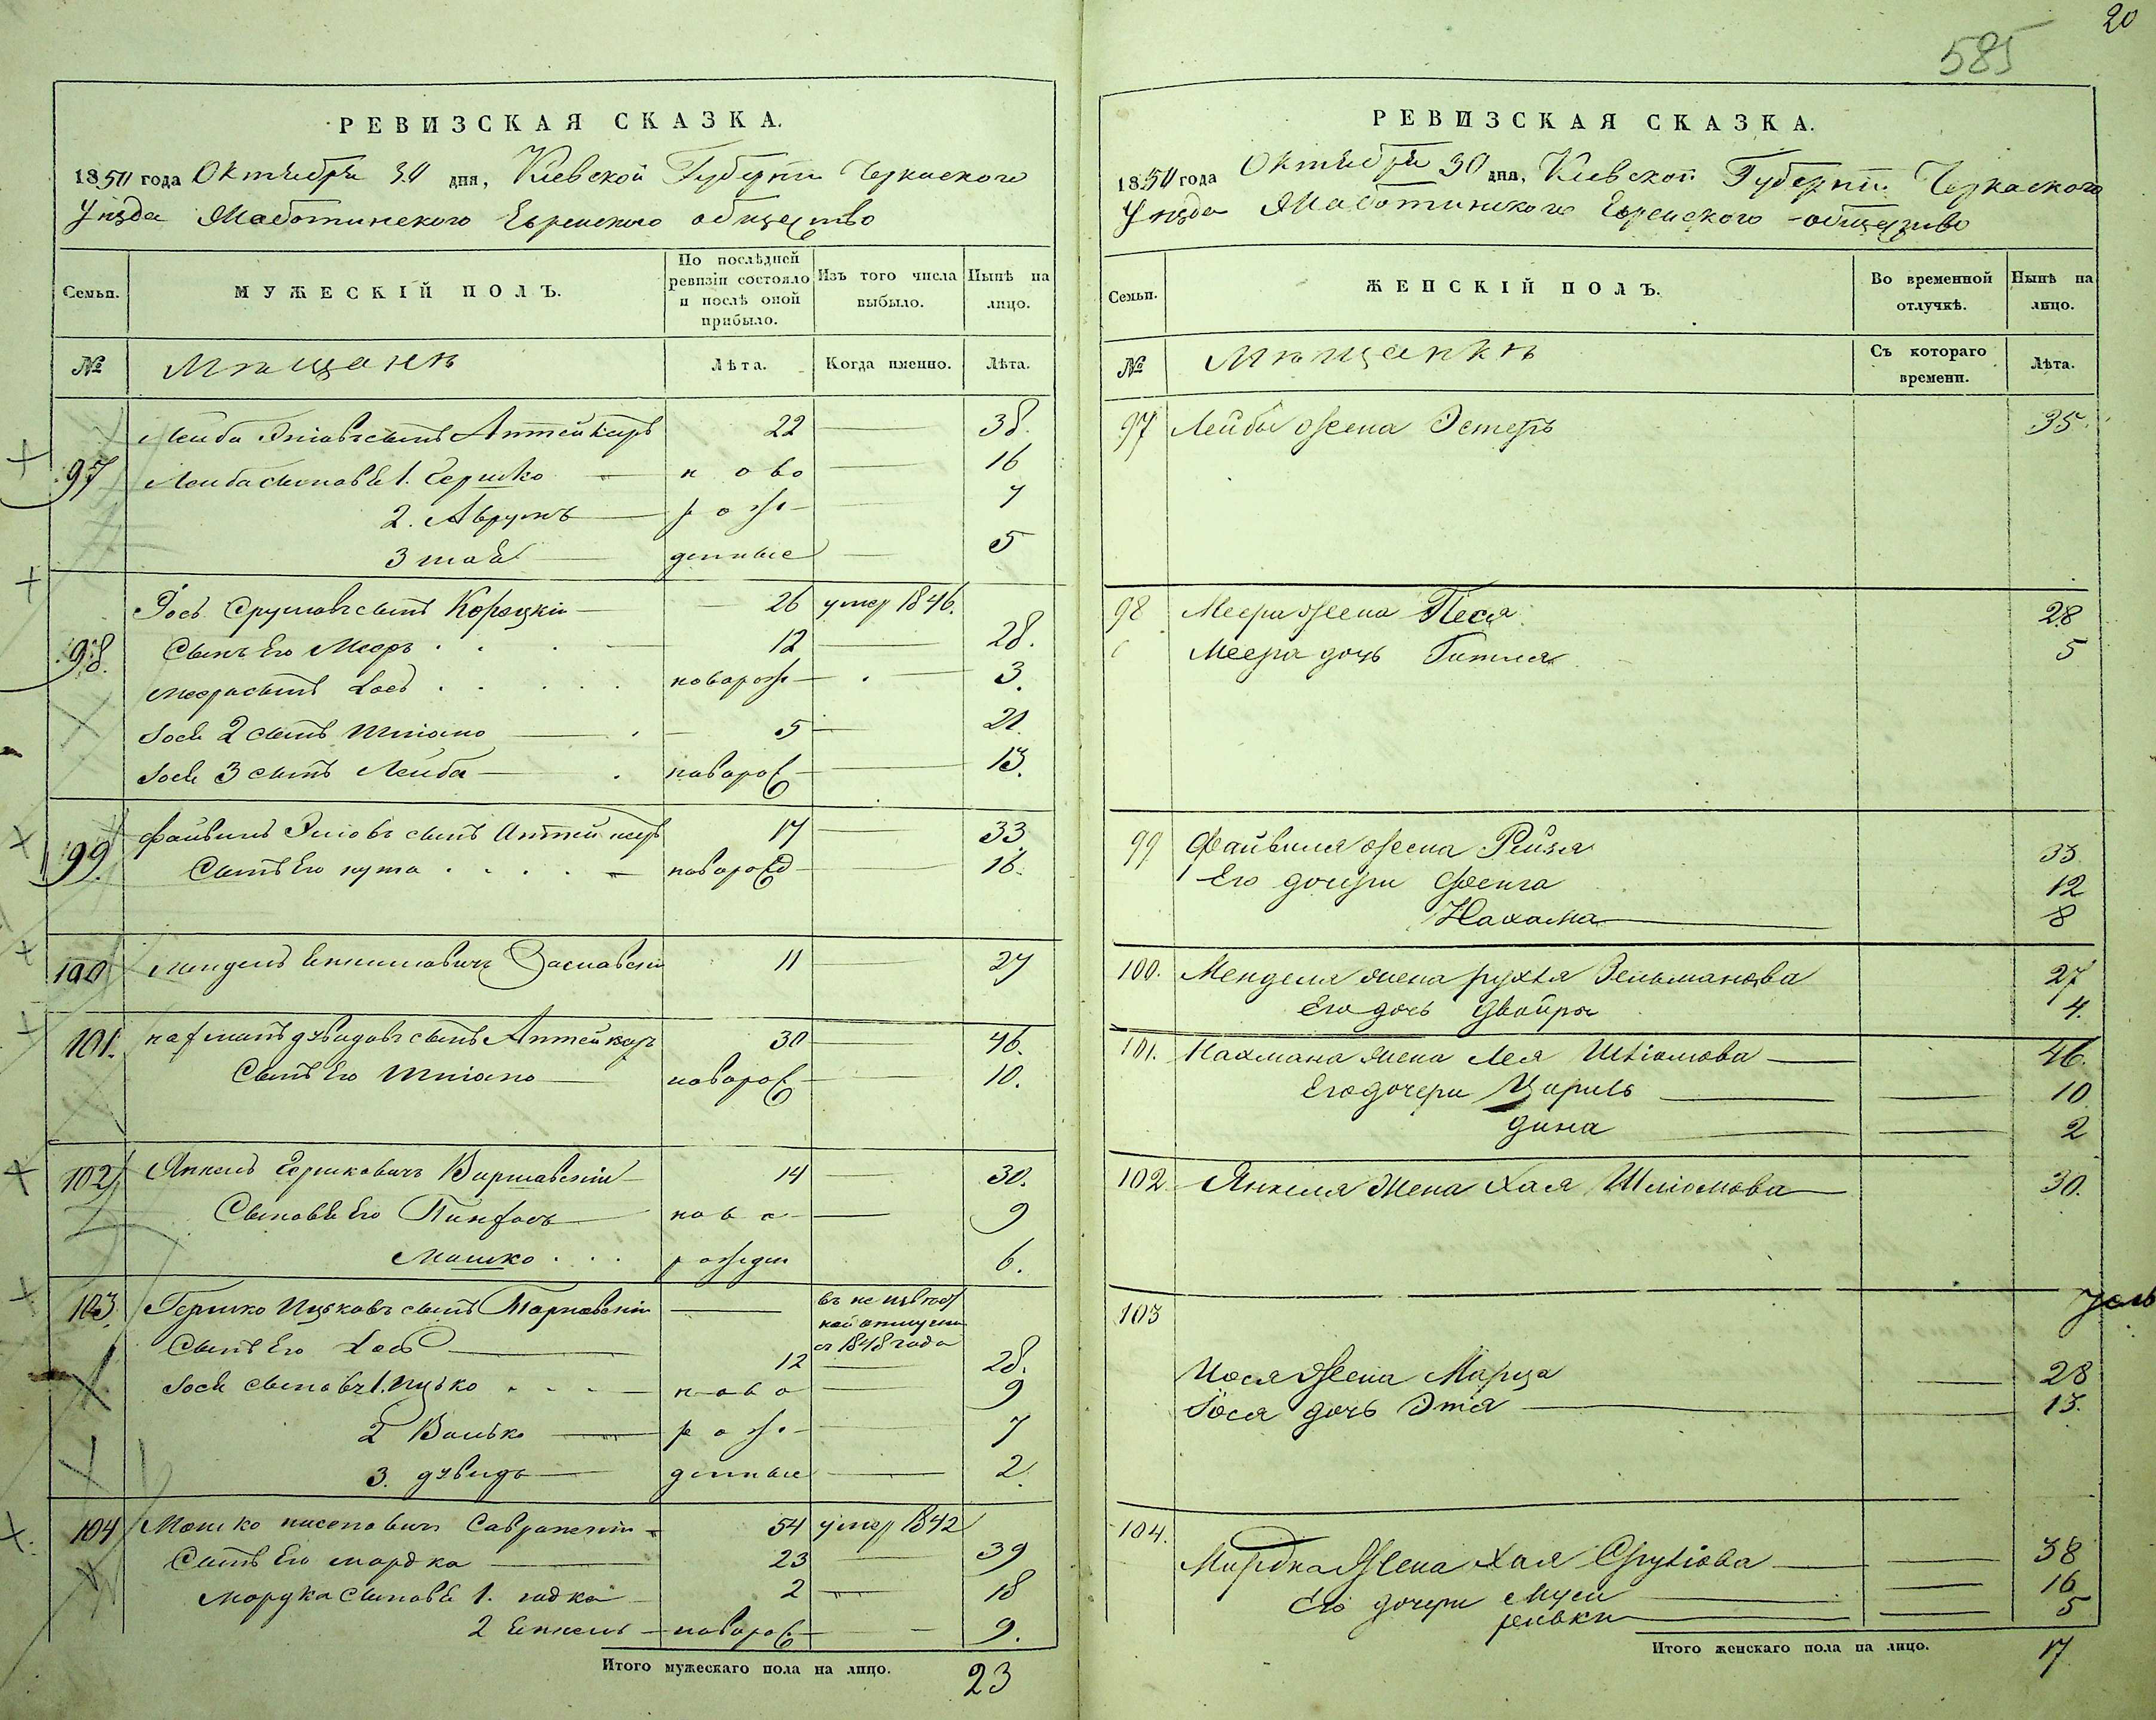 20
585
РЕВИЗСКАЯ СКАЗКА.
1850 года Октября 30 дня, Кіевской Губерніи Черкаского
Уѣзда Мадотинского Еврейского общество
Семьи. МУЖЕСКІЙ ПОЛЪ. По послѣдней ревизіи состояло и послѣ оной прибыло. Изъ того числа выбыло. Нынѣ на лицо.
№ Мѣщане Лѣта. Когда именно. Лѣта.
97 Лейба сынъ Аптейкаръ 22 38.
Лейба сыновья 1. Гершко ново 16
2. Аврумъ рож 7
3 денные 5
98. Іось Сруловъ сынъ Корецкій 26 умер 1846.
Сынъ Его Мееръ 12 28.
Меера сынъ Іось ново рож 3.
Іося 2 сынъ Шліомо 5 21.
Іося 3 сынъ Лейба ново рож 13.
99. Файвишъ сынъ Аптейкаръ 17 33.
Сынъ Его новорожд 16.
100 Мендель Заславскій 11 27
101. Нахманъ Дувидовъ сынъ Аптейкар 30 46.
Сынъ Его Шліомо новорож 10.
102 Янкель Гершковичъ Варшавскій 14 30.
Сыновья Его Пинхасъ ново 9
Мошко рожден 6.
103. Гершко Ицковъ сынъ Тарновскій въ неизвѣст
ной отлучки
съ 1848 года
Сынъ Его Іось 12 28.
Іося сыновья 1. Ицько ново 9
2 Волько рож 7
3. Дувидъ денные 2.
104 Мошко Савранскій 54 умер 1842
Сынъ Его Мордко 23 39
Мордка сыновья 1. 2 18
2 новорож 9.
Итого мужескаго пола на лицо. 23
РЕВИЗСКАЯ СКАЗКА.
1850 года Октября 30 дня, Кіевской Губерніи Черкаского
Уѣзда Еврейского общество
Семьи. ЖЕНСКІЙ ПОЛЪ. Во временной отлучкѣ. Нынѣ на лицо.
№ Мѣщанки Съ котораго времени. Лѣта.
97 Лейбы жена Эстеръ 35.
98 Меера жена Песя 28
Меера дочь Гитля 5
99 Файвиша жена Рейзя 33
Его дочери 12
Нахама 8
100. Менделя жена Рухля Зельманова 27
Его дочь Двойра 4.
101. Нахмана жена Лея Шліомова 46.
Его дочери Цириль 10
Дина 2
102 Янкеля жена Хая Шліомова 30.
103
Іося жена Мирза 28
Іося дочь Этя 13.
104. Мордка жена Хая Срулiова 38
Его дочери Муси 16
Ривки 5
Итого женскаго пола на лицо. 17